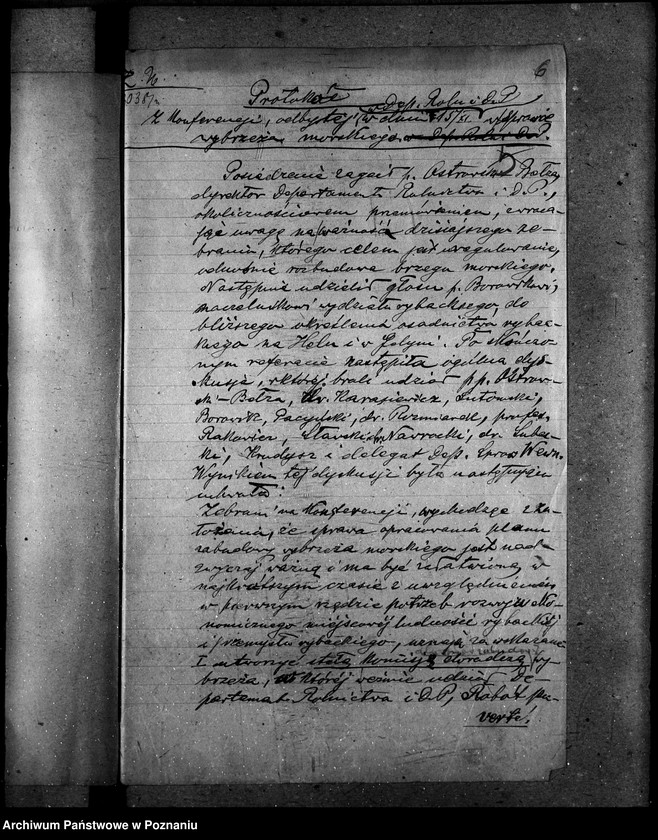 6
Z. No
Protokół
w Dep. Roln. i D.P.
z Konferencji, odbytej w dniu 15/XI. w sprawie
wybrzeża morskiego w Dep. Roln. i D.P.
Posiedzenie zagaił p. Ostrowski-Bełza,
dyrektor Departamentu Rolnictwa i D.P.,
okolicznościowem przemówieniem, zwraca-
jąc uwagę na ważność dzisiejszego ze-
brania, którego celem jest uregulowanie,
odnośnie rozbudowa brzegu morskiego.
Następnie udzielił głosu p. Borowikowi,
naczelnikowi wydziału rybackiego, do
bliższego określenia osadnictwa rybac-
kiego na Helu i w Gdyni. Po skończo-
nym referacie nastąpiła ogólna dys-
kusja, w której brali udział pp. Ostrow-
ski-Bełza, dr. Karasiewicz, Lutomski,
Borowik, dr. Rozmiarek, profes.
Rakowicz, Sławski, Nawrocki, dr.
Hrudysz i delegat Dep. Spraw Wewn.
Wynikiem tej dyskusji była następująca
uchwała:
Zebrani na Konferencji, wychodząc z za-
łożenia, że sprawa opracowania planu
zabudowy wybrzeża morskiego jest nad-
zwyczaj ważną i ma być załatwioną w
najkrótszym czasie z uwzględnieniem
w pierwszym rzędzie potrzeb rozwoju eko-
nomicznego miejscowej ludności rybackiej
i przemysłu rybackiego, uznają za wskazane
I utworzyć stałą komisję doradczą wy-
brzeża, do której weźmie udział De-
partament Rolnictwa i D.P., Robót Pu-
Archiwum Państwowe w Poznaniu